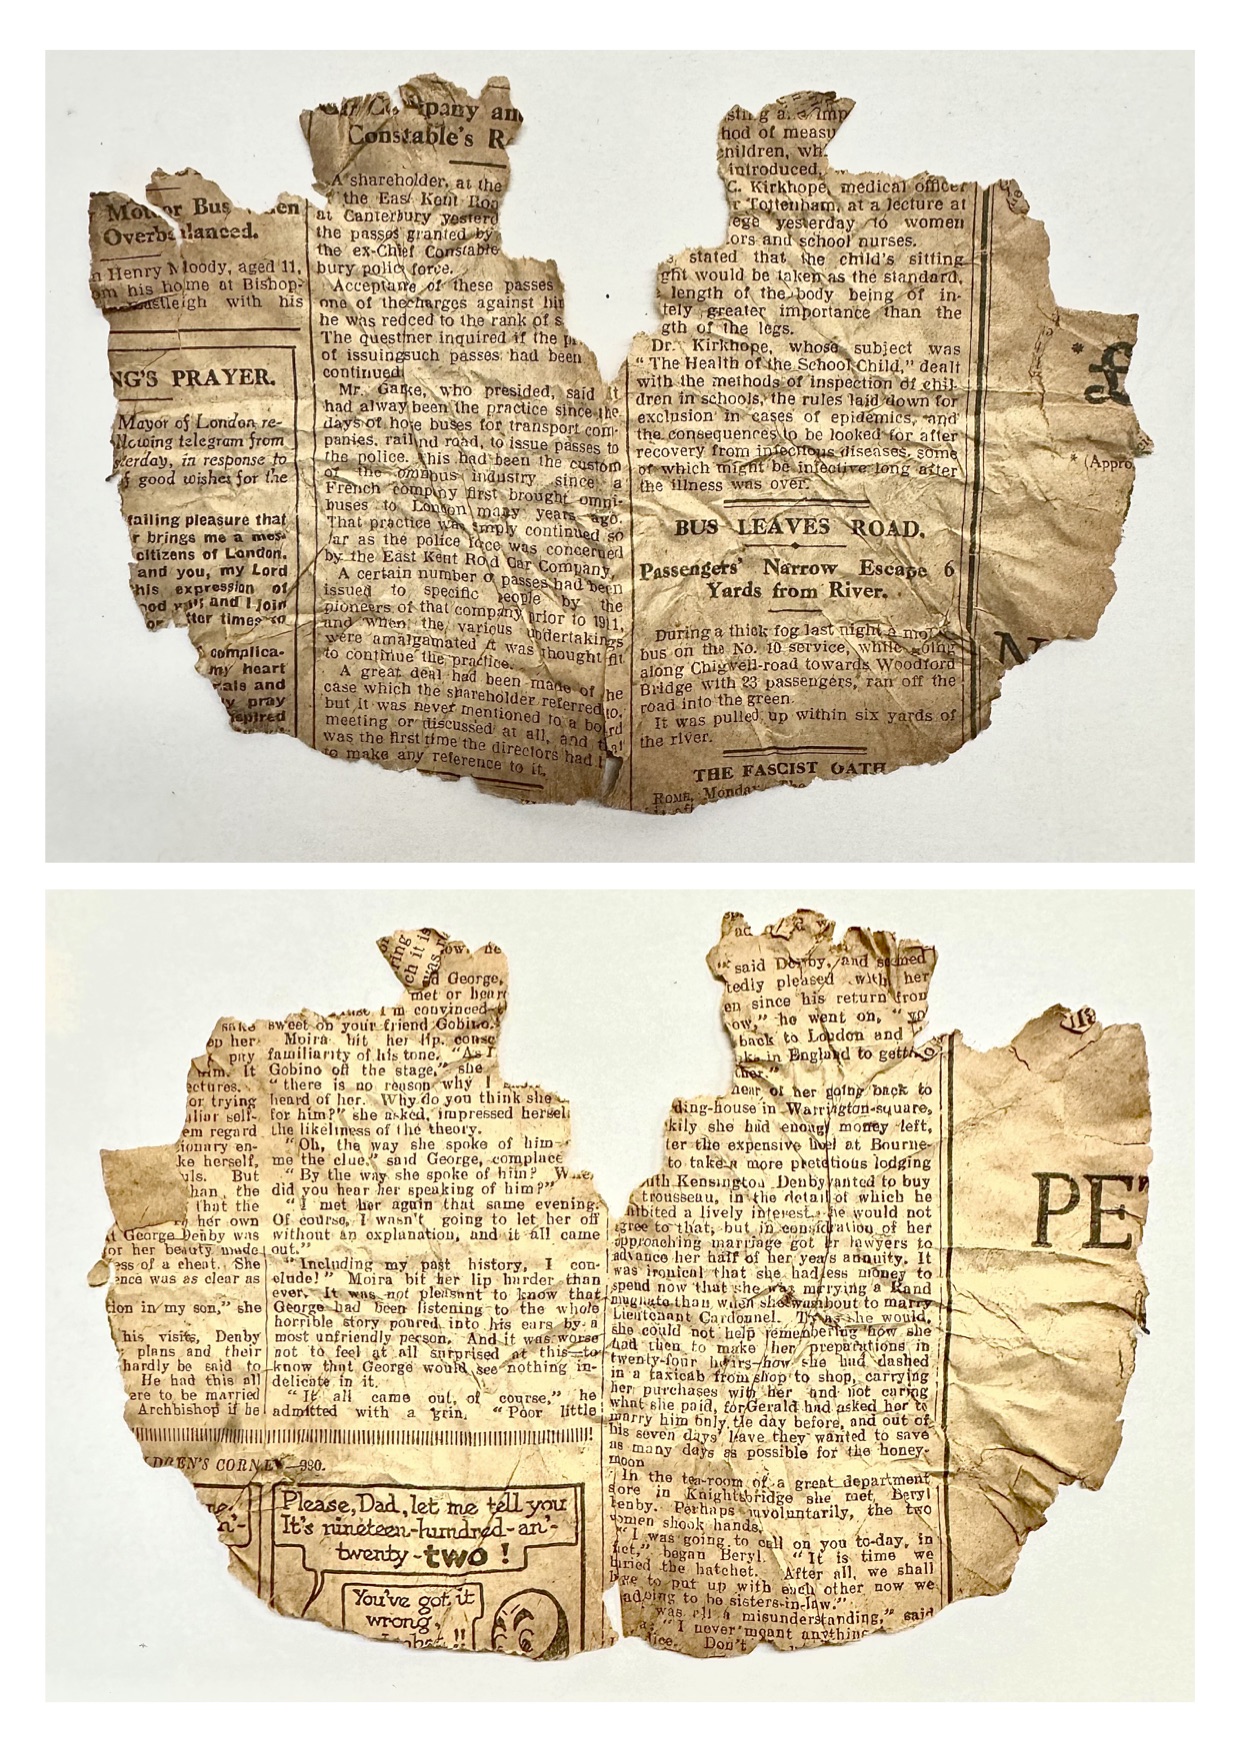 Motor Bus
Overbalanced.
Henry Moody, aged 11,
his home at Bishop-
Eastleigh with his
NG'S PRAYER.
Mayor of London re-
llowing telegram from
sterday, in response to
of good wishes for the
failing pleasure that
r brings me a mes-
citizens of London,
and you, my Lord
his expression of
and I join
times to
complica-
my heart
als and
pray
spired
pany an
Constable's R
A shareholder, at the
the East Kent Roa
at Canterbury yesterd
the passes granted by
the ex-Chief Constable
bury police force.
Acceptance of these passes
one of the charges against him
he was reduced to the rank of s
The questioner inquired if the p
of issuing such passes had been
continued
Mr. Garke, who presided, said it
had always been the practice since the
days of horse buses for transport com-
panies, rail and road, to issue passes to
the police. This had been the custom
of the omnibus industry since a
French company first brought omni-
buses to London many years ago.
That practice was simply continued so
far as the police force was concerned
by the East Kent Road Car Company.
A certain number of passes had been
issued to specific people by the
pioneers of that company prior to 1911,
and when the various undertakings
were amalgamated it was thought fit
to continue the practice.
A great deal had been made of the
case which the shareholder referred to,
but it was never mentioned to a board
meeting or discussed at all, and that
was the first time the directors had
to make any reference to it.
hod of measu
hildren, wh
introduced,
C. Kirkhope, medical officer
r Tottenham, at a lecture at
ege yesterday to women
ors and school nurses.
stated that the child's sitting
ght would be taken as the standard,
length of the body being of in-
tely greater importance than the
gth of the legs.
Dr. Kirkhope, whose subject was
"The Health of the School Child," dealt
with the methods of inspection of chil-
dren in schools, the rules laid down for
exclusion in cases of epidemics, and
the consequences to be looked for after
recovery from infectious diseases, some
of which might be infective long after
the illness was over.
BUS LEAVES ROAD.
Passengers' Narrow Escape 6
Yards from River.
During a thick fog last night a motor
bus on the No. 10 service, while going
along Chigwell-road towards Woodford
Bridge with 23 passengers, ran off the
road into the green.
It was pulled up within six yards of
the river.
THE FASCIST OATH
ROME, Monday. The
* £
* (Appro
N
sake
op her
pay
him. It
ectures.
or trying
iliar self-
em regard
ionary en-
ke herself,
uls. But
han the
that the
her own
t George Denby was
or her beauty made
ess of a cheat. She
ence was as clear as
ion in my son," she
his visits, Denby
plans and their
hardly be said to
He had this all
ere to be married
Archbishop if he
ring
ch it is
was
ow, he
d George,
met or hear
I'm convinced
sweet on your friend Gobino."
Moira bit her lip, consc
familiarity of his tone. "As I
Gobino off the stage," she
"there is no reason why I
heard of her. Why do you think she
for him?" she asked, impressed hersel
the likeliness of the theory.
"Oh, the way she spoke of him
me the clue," said George, complace
"By the way she spoke of him? W
did you hear her speaking of him?"
"I met her again that same evening.
Of course, I wasn't going to let her off
without an explanation, and it all came
out."
"Including my past history, I con-
clude!" Moira bit her lip harder than
ever. It was not pleasant to know that
George had been listening to the whole
horrible story poured into his ears by a
most unfriendly person. And it was worse
not to feel at all surprised at this—to
know that George would see nothing in-
delicate in it.
"It all came out, of course," he
admitted with a grin. "Poor little
DREN'S CORNER—930.
Please, Dad, let me tell you
It's nineteen-hundred-an'-
twenty-two!
You've got it
wrong,
n'-
said Denby, and seemed
tedly pleased with her
en since his return from
ow," he went on, "yo
back to London and
ks in England to getting
ther."
hear of her going back to
ding-house in Warrington-square,
kily she had enough money left,
ter the expensive hotel at Bourne-
to take a more pretentious lodging
uth Kensington. Denby wanted to buy
trousseau, in the detail of which he
hibited a lively interest. She would not
agree to that, but in consideration of her
approaching marriage got her lawyers to
advance her half of her year's annuity. It
was ironical that she had less money to
spend now that she was marrying a Rand
magnate than when she was about to marry
Lieutenant Cardonnel. Try as she would,
she could not help remembering how she
had then to make her preparations in
twenty-four hours—how she had dashed
in a taxicab from shop to shop, carrying
her purchases with her and not caring
what she paid, for Gerald had asked her to
marry him only the day before, and out of
his seven days' leave they wanted to save
as many days as possible for the honey-
moon
In the tea-room of a great department
store in Knightsbridge she met Beryl
Denby. Perhaps involuntarily, the two
women shook hands.
"I was going to call on you to-day, in
fact," began Beryl. "It is time we
buried the hatchet. After all, we shall
have to put up with each other now we
going to be sisters-in-law."
was all a misunderstanding," said
"I never meant anything
lice. Don't
PE